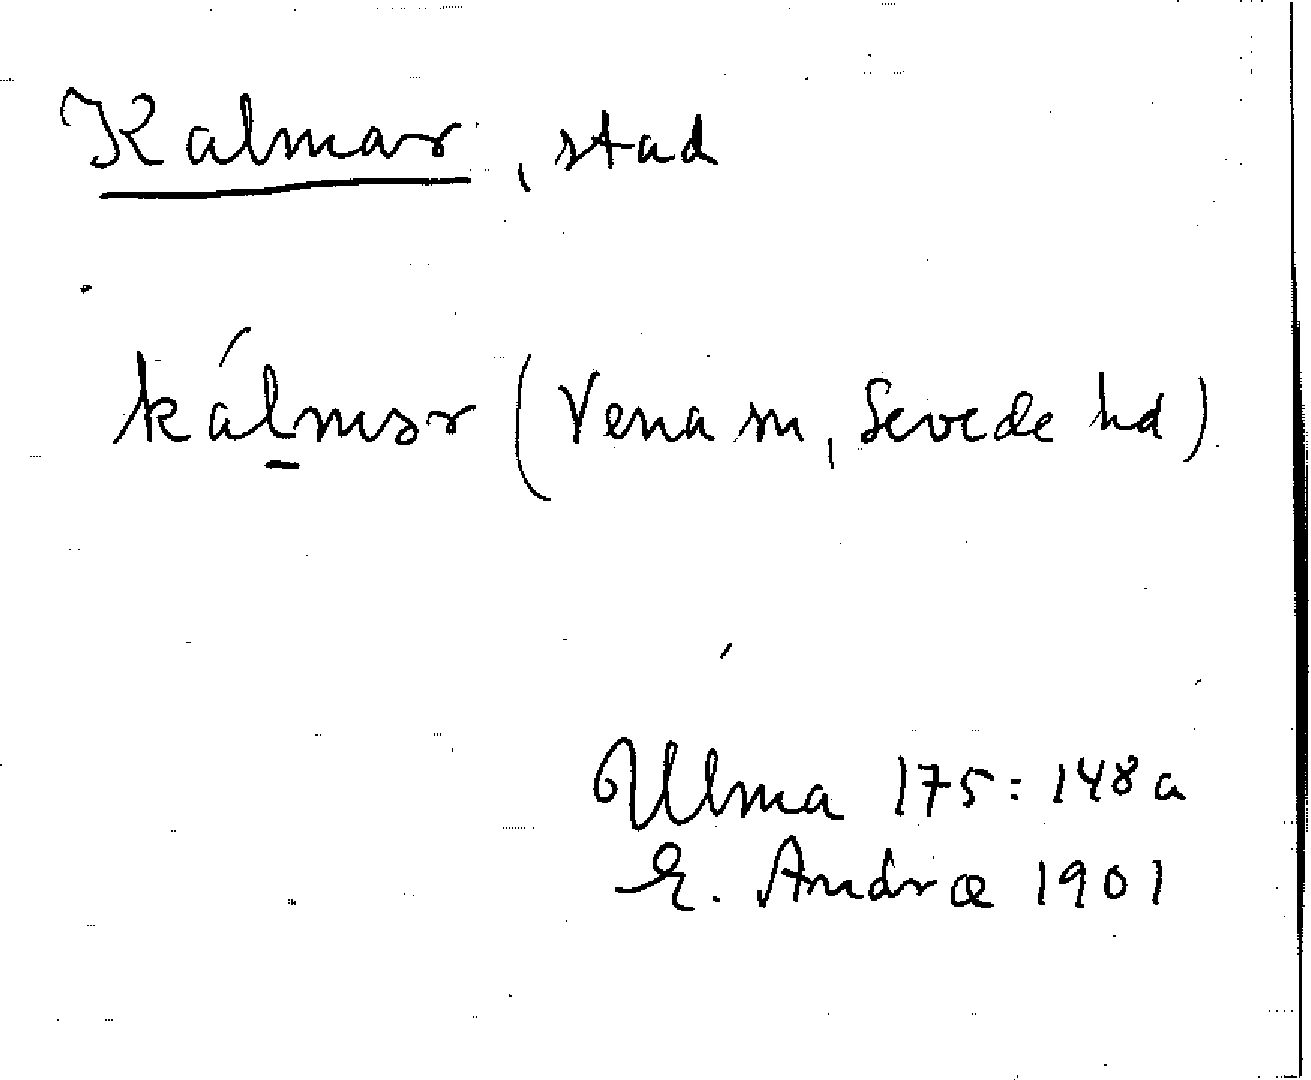 Kalmar, stad
kál̲mər (Vena sn, Sevede hd)
Ulma 175:148a
E. Andræ 1901